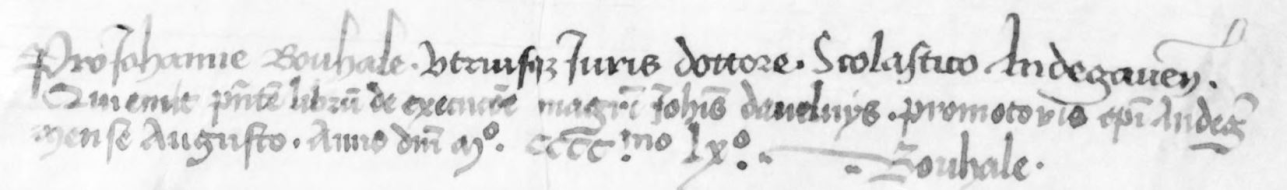 Pro Johanne Bouhale. Vtriusqz Juris dottore. Scolastico Andegaven̄.
Qui emit pn̄tē librū de execucōe magr̄i Joh̄is daveluys. promotoris epī Andeḡ
mense Augusto. Anno dn̄i mº. ccccᵐᵒ lxº. Bouhale.